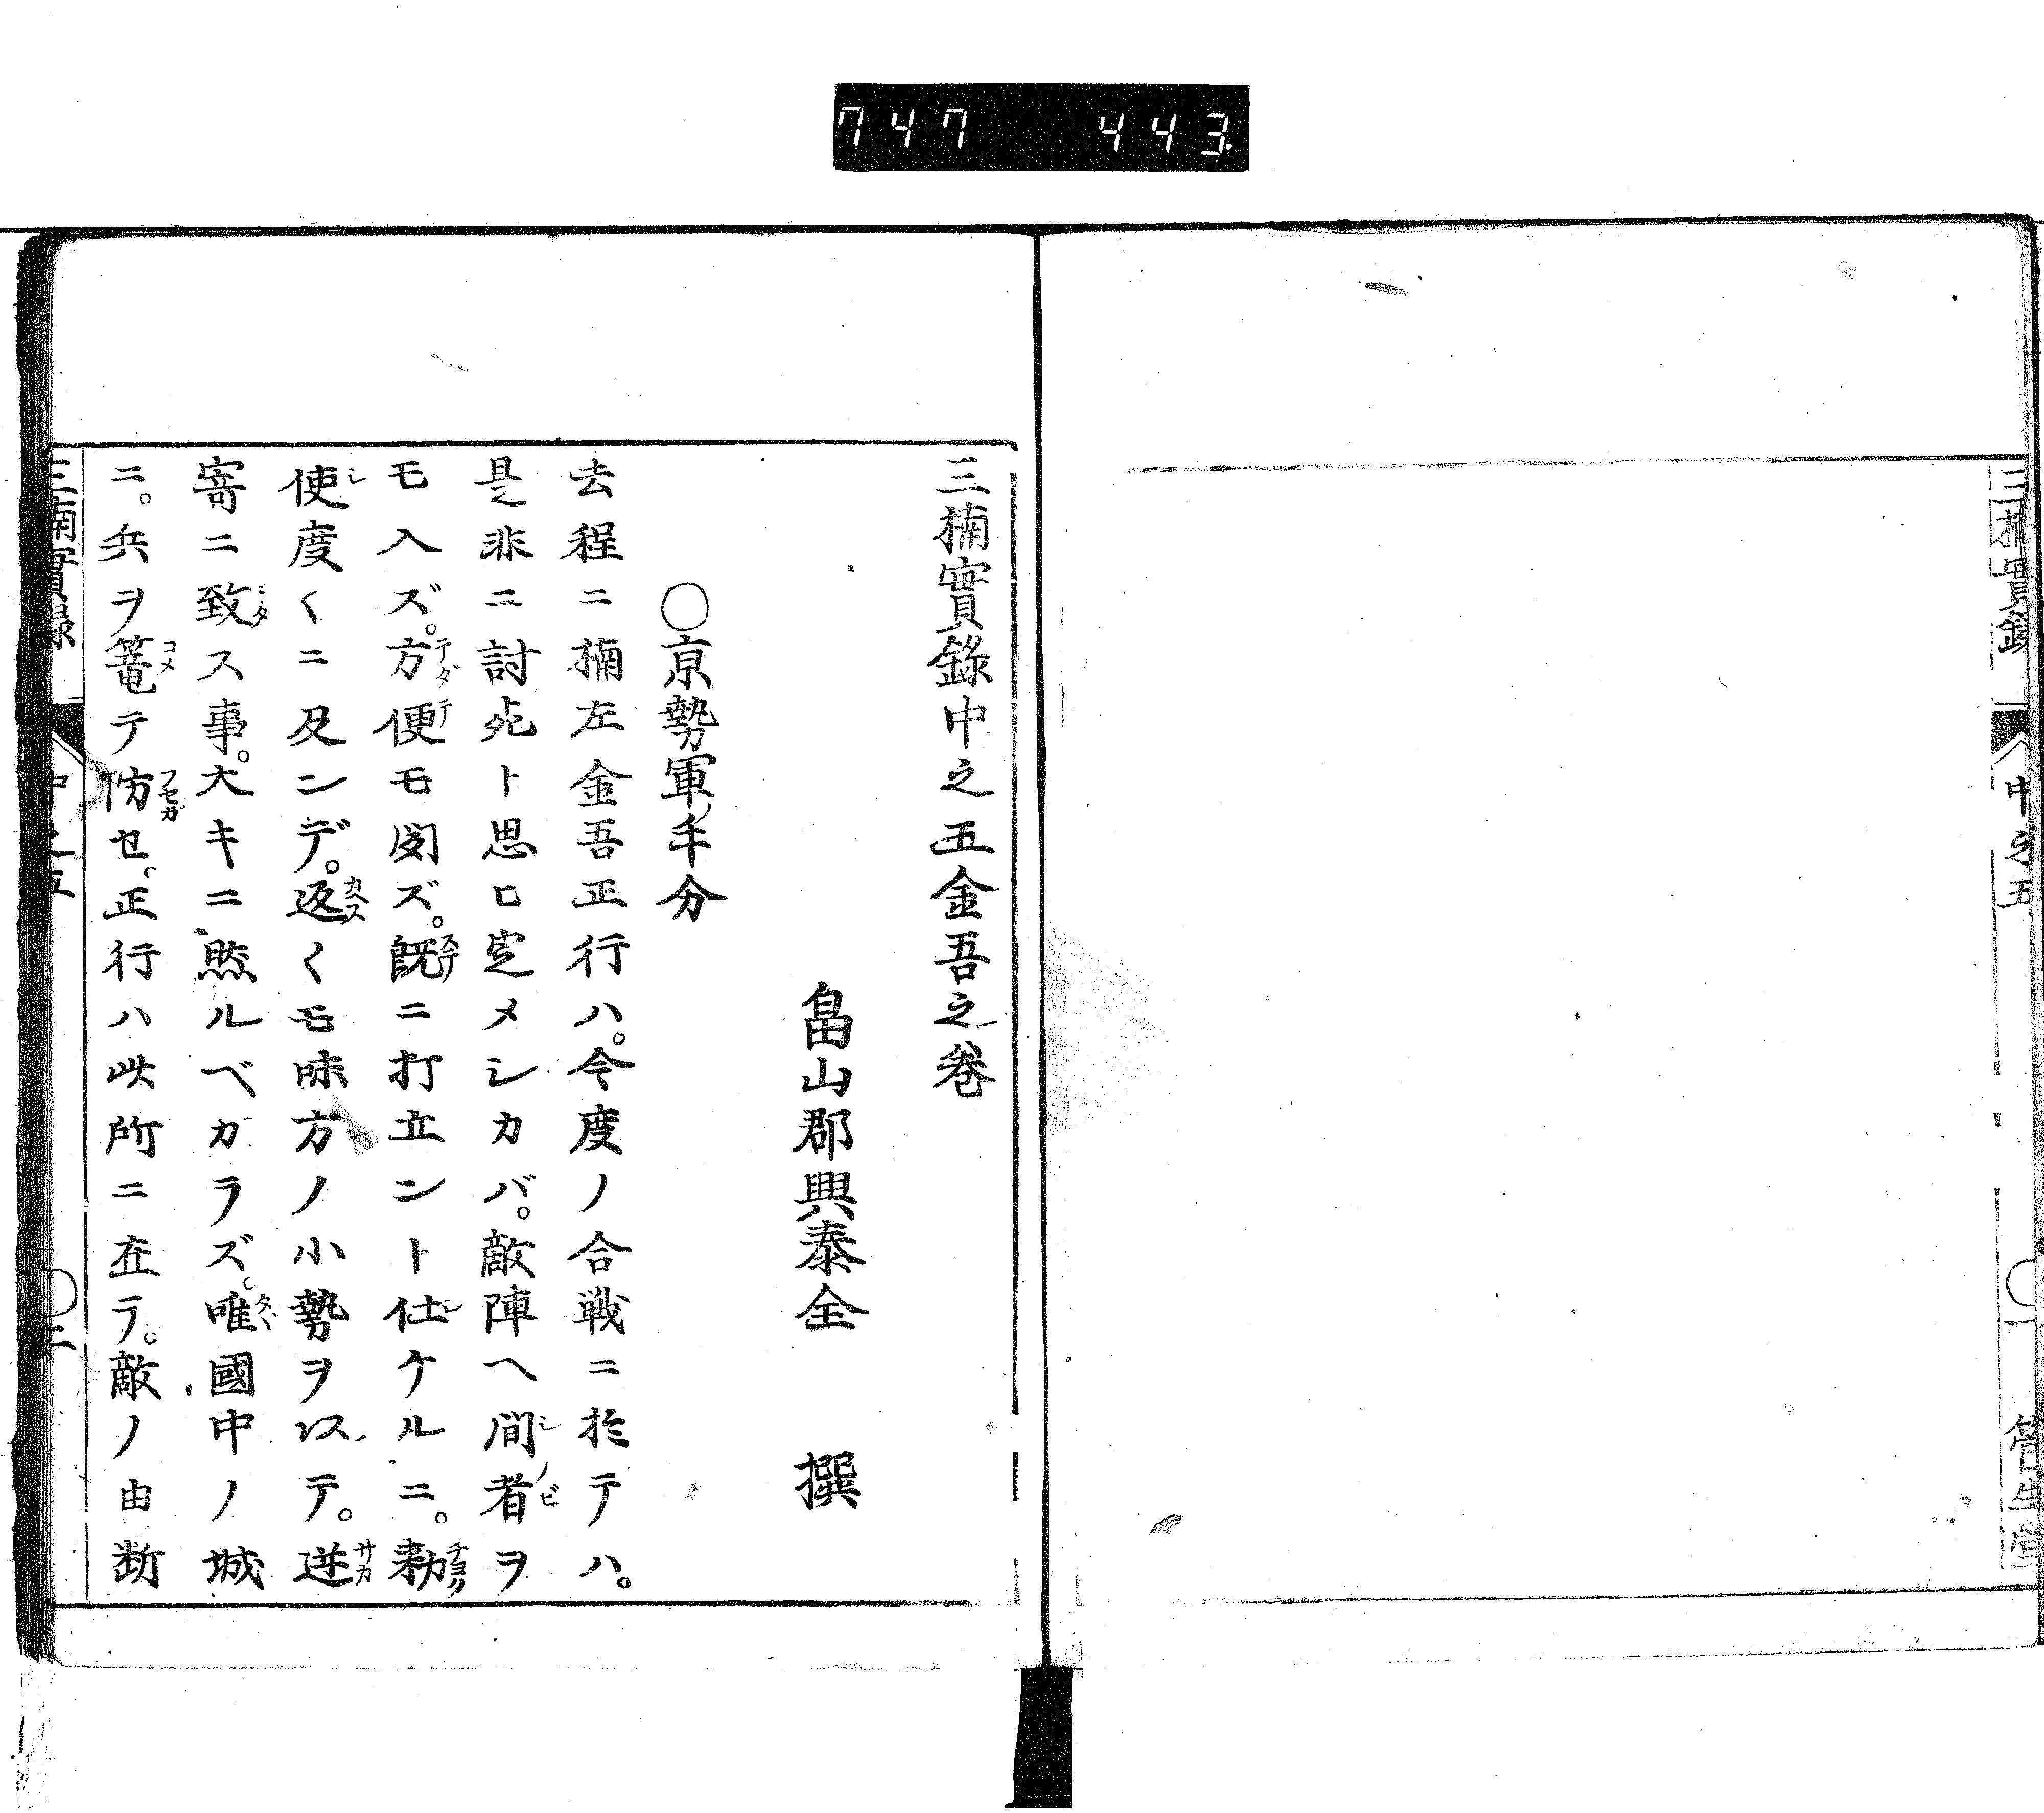 747 443
三楠實錄 中之五 〇一
三楠實錄中之五金吾之卷
畠山郡興泰全 撰
〇京勢軍ノ手分
去程ニ楠左金吾正行ハ。今度ノ合戦ニ於テハ。
是非ニ討死ト思ヒ定メシカバ。敵陣ヘ間者ヲ
モ入ズ。方便モ図ズ。既ニ打立ント仕ケルニ。勅
使度〱ニ及ンデ。返〱モ味方ノ小勢ヲ以テ。逆
寄ニ致ス事。大キニ然ルベカラズ。唯國中ノ城
ニ。兵ヲ篭テ防セ。正行ハ此所ニ在テ。敵ノ由断
三楠實録 中之五 〇二